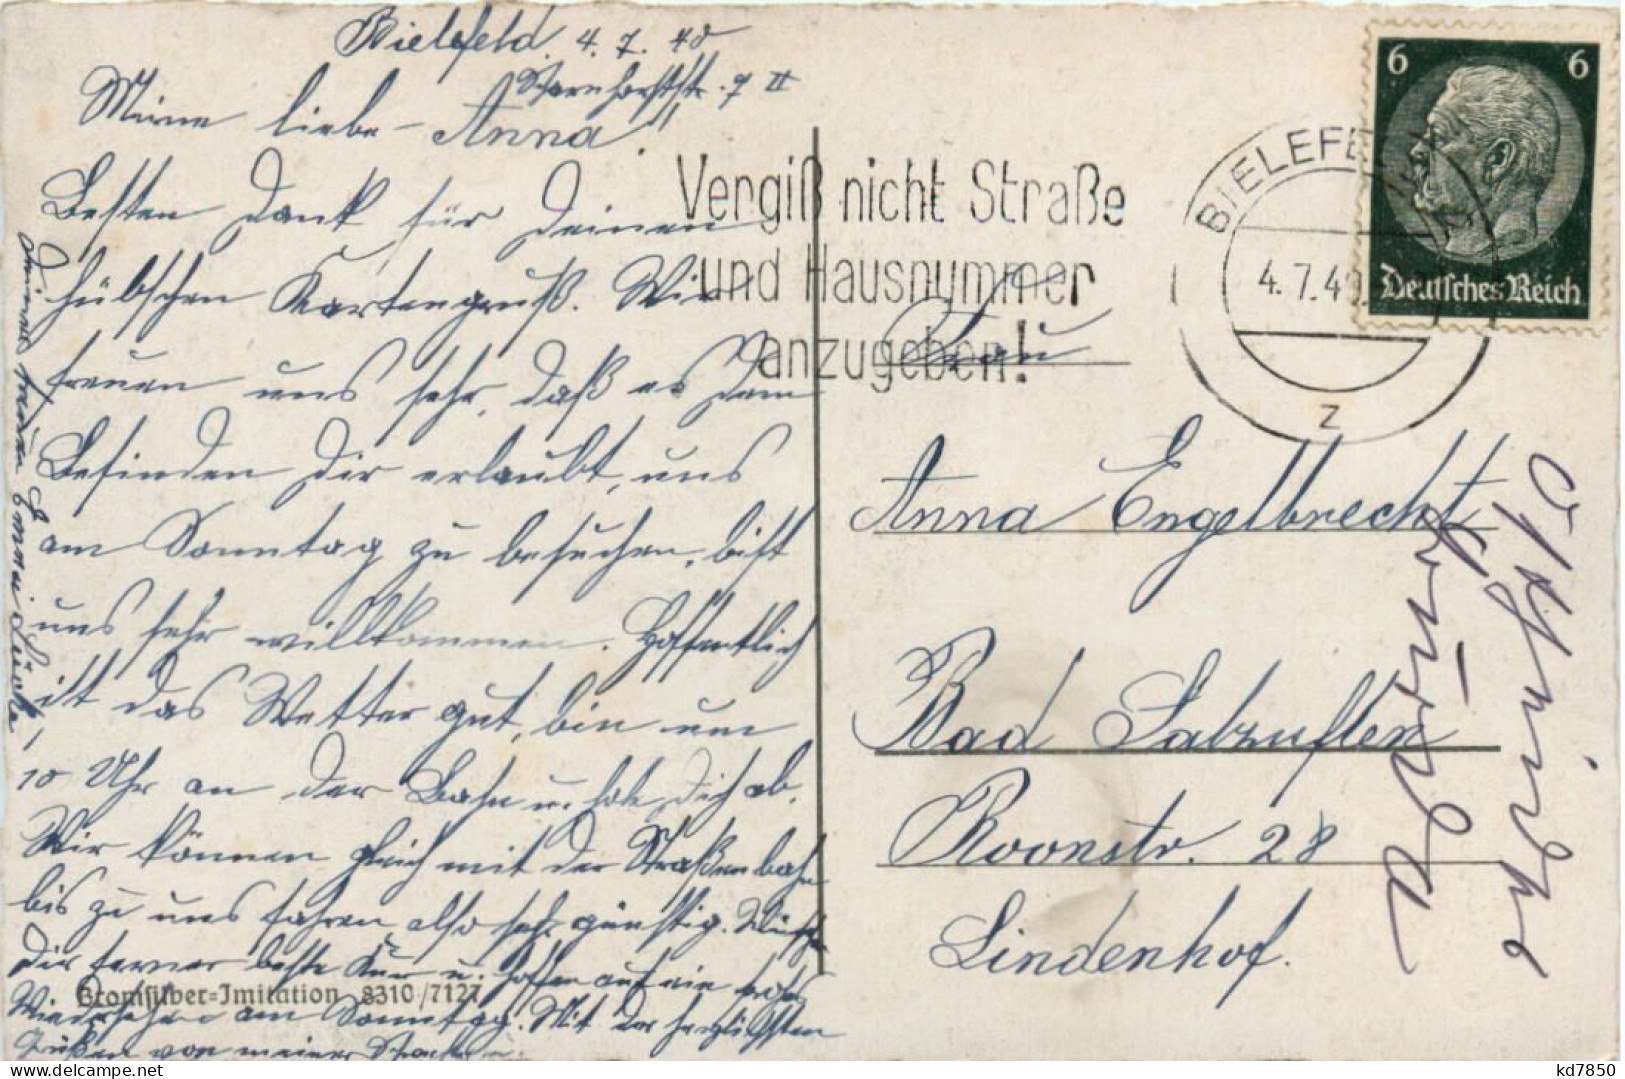 Bielefeld. 4. 7. 40
Starnhorststr. 7 II
Meine liebe Anna!
Besten Dank für Deinen
hübschen Kartengruß. Wir
freuen uns sehr, daß es Dein
Befinden Dir erlaubt, uns
am Sonntag zu besuchen, bist
uns sehr willkommen. Hoffentlich
ist das Wetter gut, bin um
10 Uhr an der Bahn u. hole Dich ab.
Wir können gleich mit der Straßenbahn
bis zu uns fahren also sehr günstig. Wünsche
Dir ferner beste Kur u. hoffen auf ein frohes
Wiedersehen am Sonntag. Mit den herzlichsten
Grüßen von meiner
Deine Emmi
Bromsilber=Imitation 8310/7127
Vergiß nicht Straße
und Hausnummer
anzugeben!
BIELEFELD
4.7.40
z
6 6
Deutsches Reich
Frau
Anna Engelbrecht
Bad Salzuflen
Roonstr. 28
Lindenhof.
kd7850